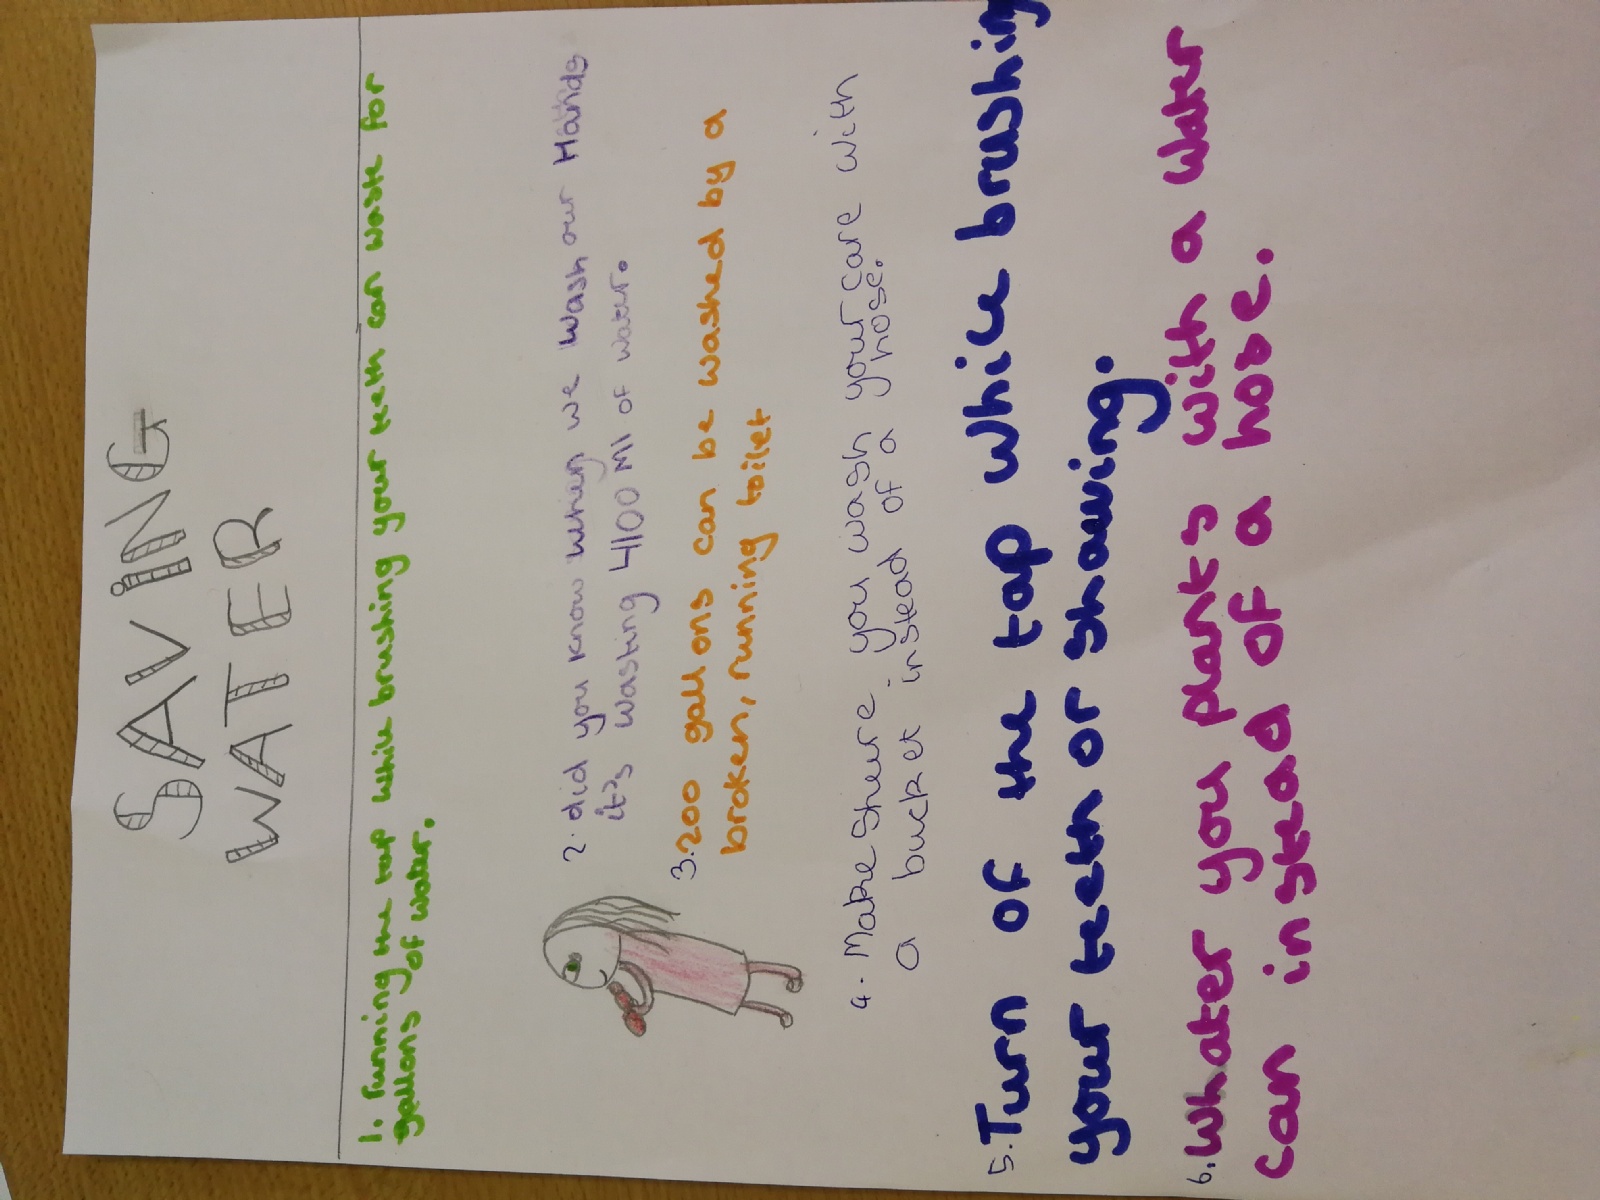 SAVING
WATER
1. running the tap while brushing your teeth can waste for
gallons of water.
2. did you know when we wash our Hands
it's wasting 4100 Ml of water.
3. 200 gallons can be washed by a
broken, running toilet
4. Make Sheire you wash your care with
a bucket instead of a hose.
5. Turn of the tap while brushing
your teeth or shaving.
6. Whater you plants with a water
can instead of a hose.